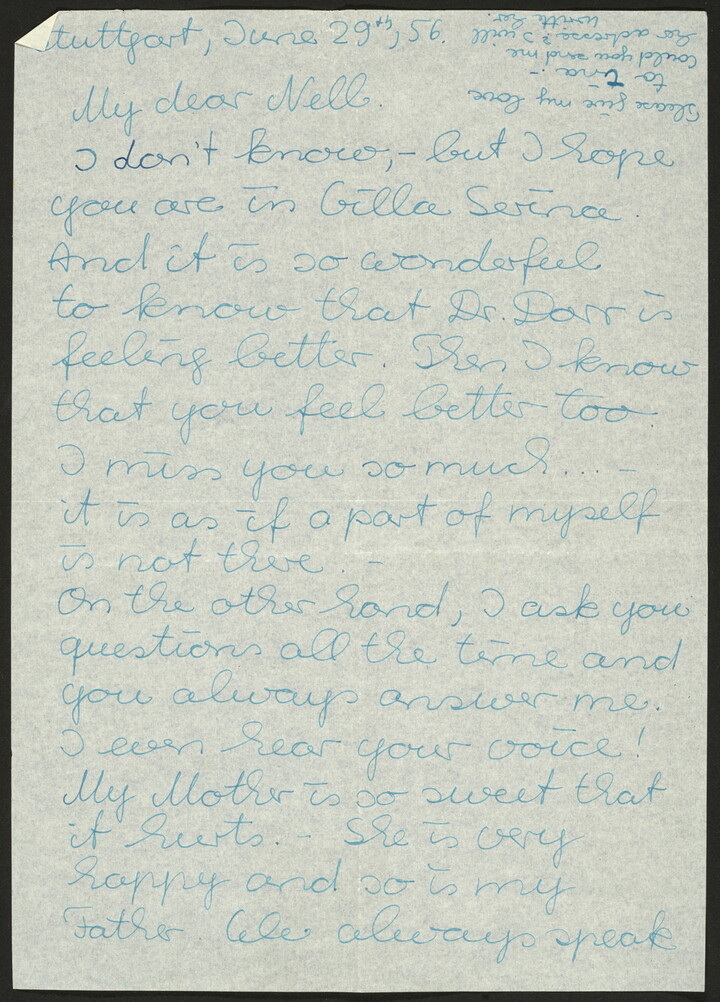 Stuttgart, June 29th, 56.
My dear Nell.
I don't know, - but I hope
you are in Villa Serina.
And it is so wonderful
to know that Dr. Dorr is
feeling better. Then I know
that you feel better too.
I miss you so much... -
it is as if a part of myself
is not there. -
On the other hand, I ask you
questions all the time and
you always answer me.
I even hear your voice!
My Mother is so sweet that
it hurts. - She is very
happy and so is my
Father. We always speak
Please give my love
to Tina. -
Could you send me
her adresse? I will
write her.